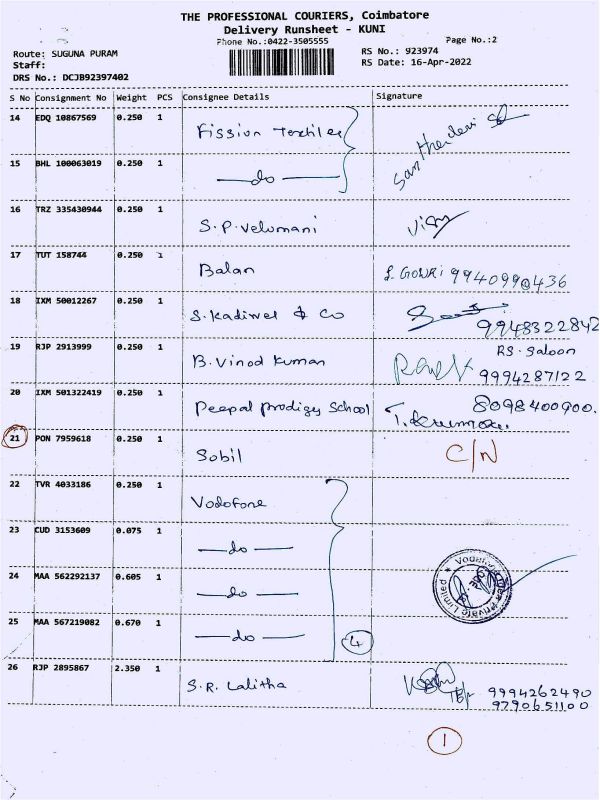 THE PROFESSIONAL COURIERS, Coimbatore
Delivery Runsheet - KUNI
Phone No.:0422-3505555
Page No.:2
Route: SUGUNA PURAM
RS No.: 923974
Staff:
RS Date: 16-Apr-2022
DRS No.: DCJB92397402
S No Consignment No Weight PCS Consignee Details Signature
14 EDQ 10867569 0.250 1 Fission Textiles
15 BHL 100063019 0.250 1 —do—
16 TRZ 335430944 0.250 1 S.P.Velumani
17 TUT 158744 0.250 1 Balan
S. GOWRI 9940990436
18 IXM 50012267 0.250 1 S.Kadivel & Co
9948322842
19 RJP 2913999 0.250 1 B. Vinod Kuman
RS. Saloon
9994287122
20 IXM 501322419 0.250 1 Peepal Prodigy School
8098400900.
21 PON 7959618 0.250 1 Sobil C/N
22 TVR 4033186 0.250 1 Vodofone
23 CUD 3153609 0.075 1 —do—
24 MAA 562292137 0.605 1 —do—
25 MAA 567219082 0.670 1 —do—
4
Private Limited
26 RJP 2895867 2.350 1 S.R. Lalitha
9994262490
9790651100
1